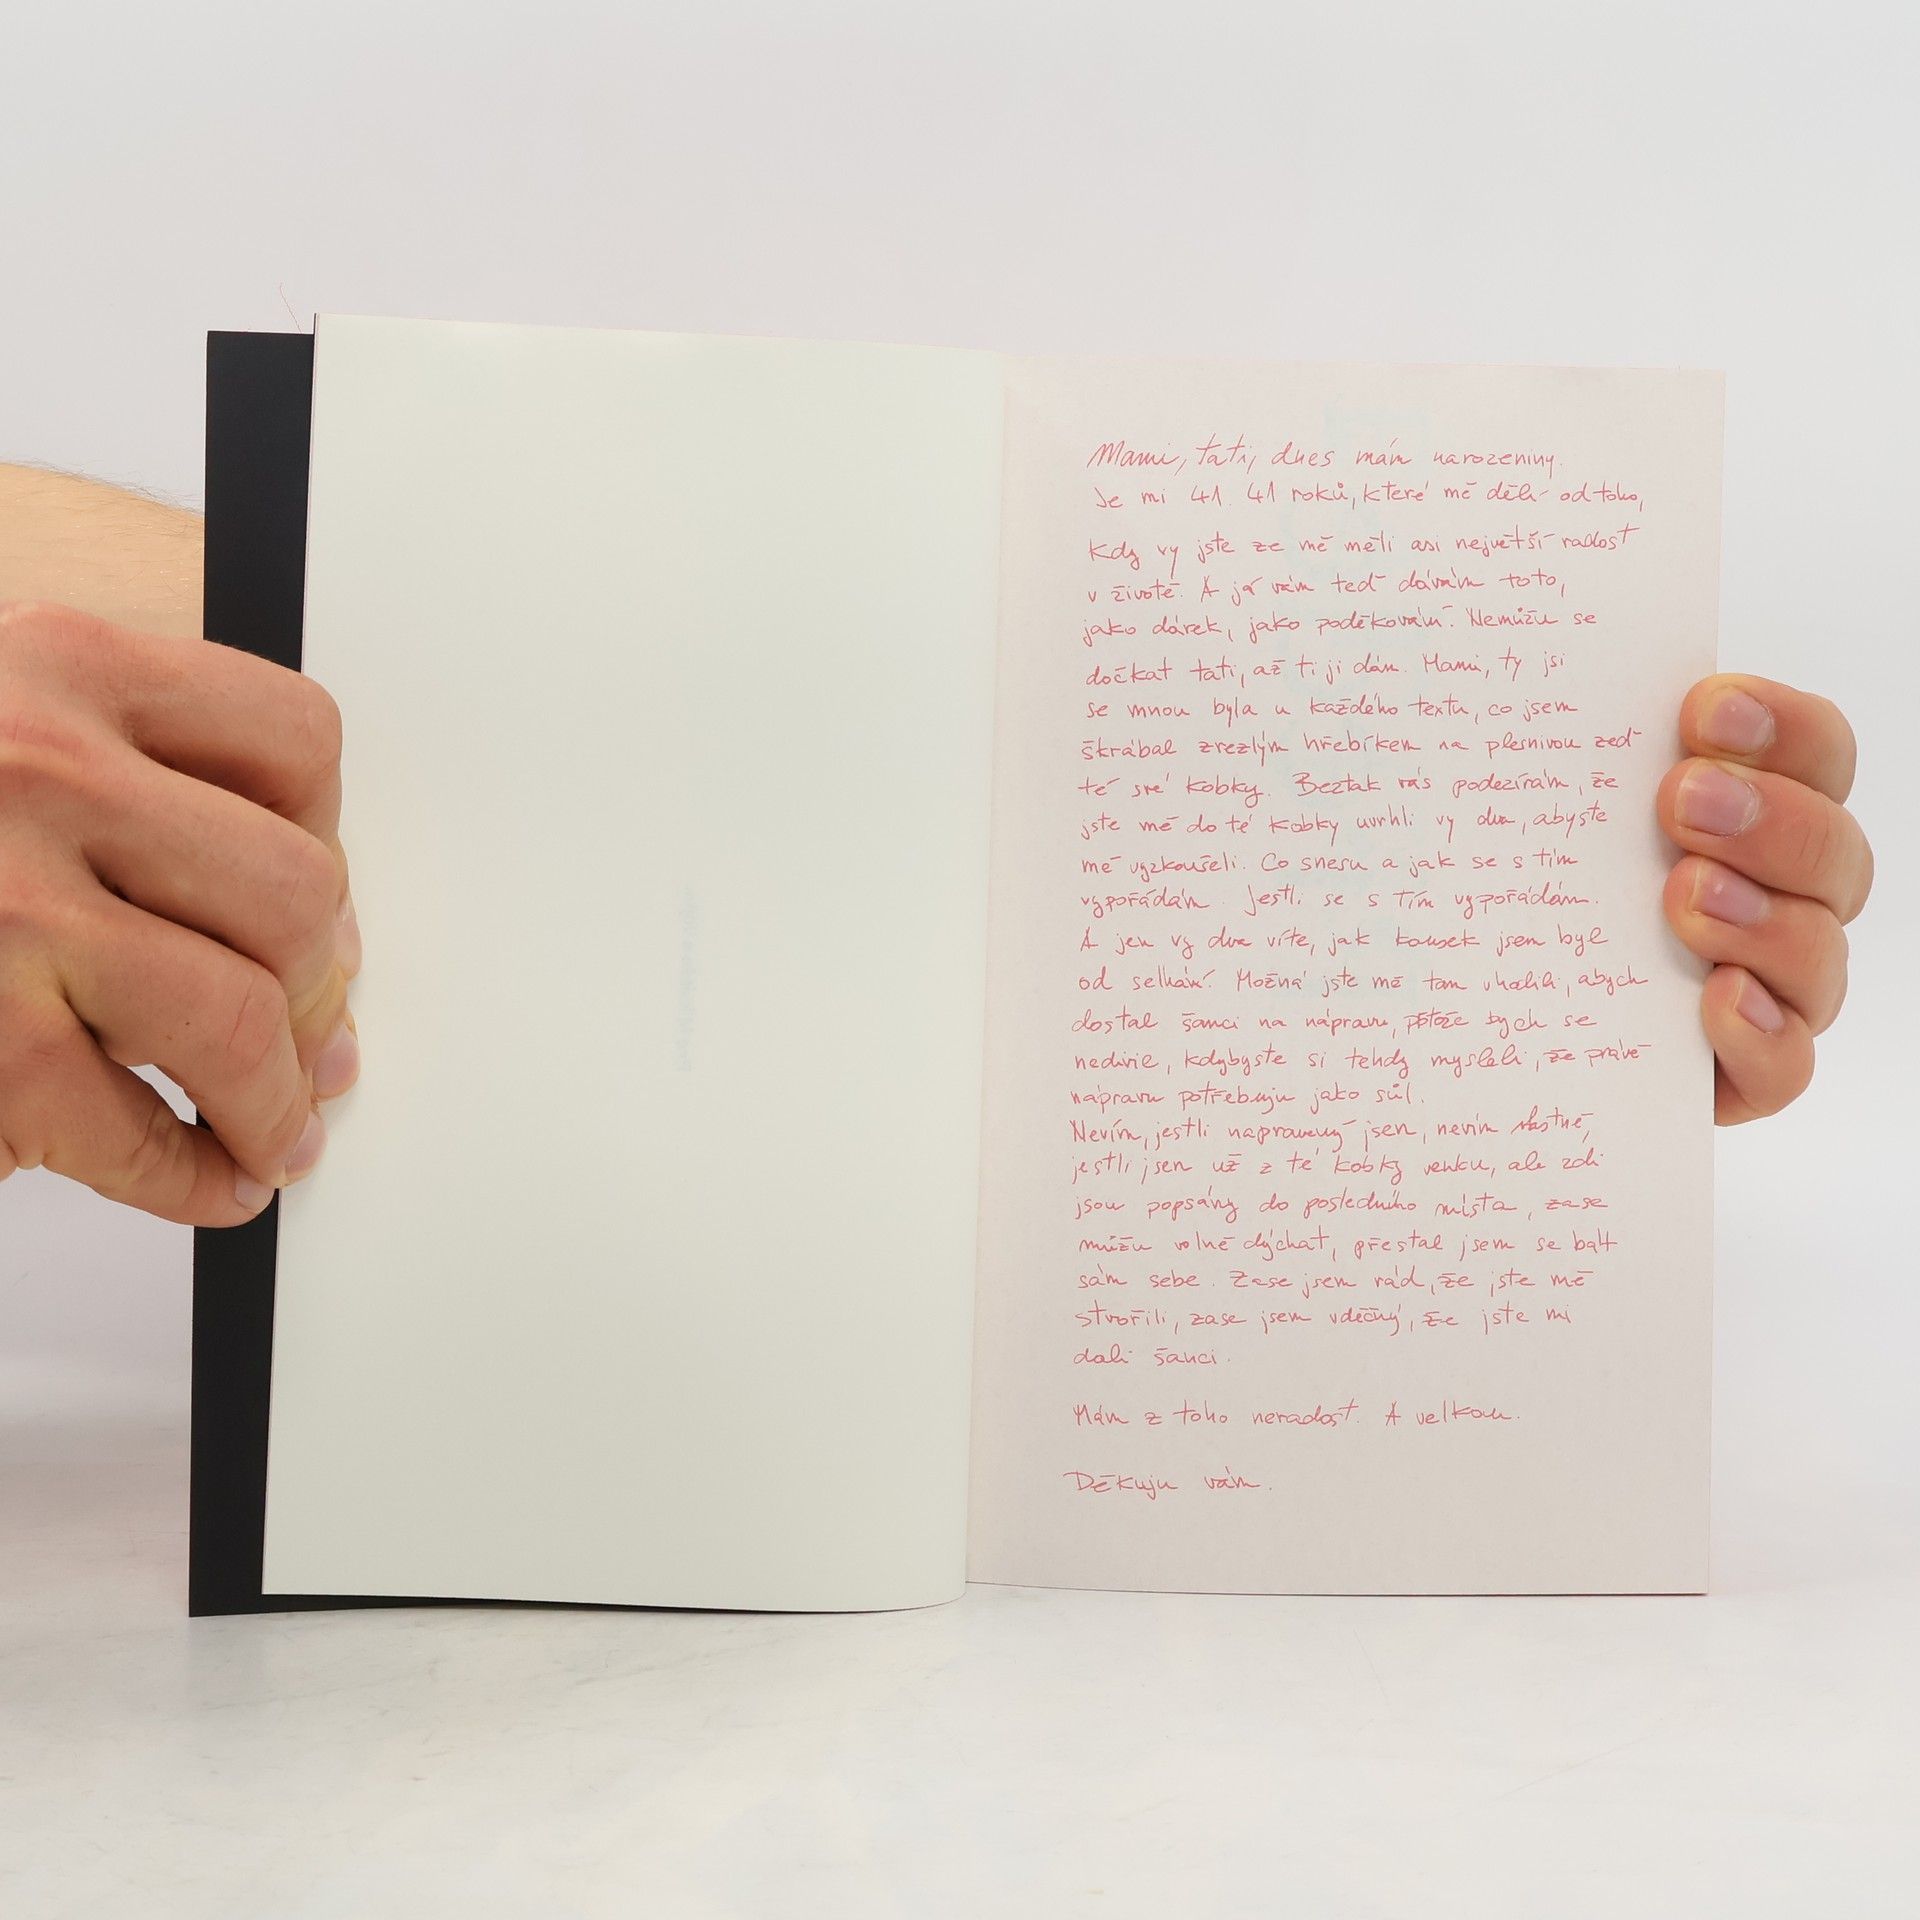 Mami, tati, dnes mám narozeniny.
Je mi 41. 41 roků, které mě dělí od toho,
kdy vy jste ze mě měli asi největší radost
v životě. A já vám teď dávám toto,
jako dárek, jako poděkování. Nemůžu se
dočkat tati, až ti ji dám. Mami, ty jsi
se mnou byla u každého textu, co jsem
škrábal zrezlým hřebíkem na plesnivou zeď
té své kobky. Beztak vás podezírám, že
jste mě do té kobky uvrhli vy dva, abyste
mě vyzkoušeli. Co snesu a jak se s tím
vypořádám. Jestli se s tím vypořádám.
A jen vy dva víte, jak kousek jsem byl
od selhání. Možná jste mě tam uvalili, abych
dostal šanci na nápravu, bych se
nedivil, kdybyste si tehdy mysleli, že právě
nápravu potřebuju jako sůl.
Nevím, jestli napravený jsem, nevím vlastně,
jestli jsem už z té kobky venku, ale zdi
jsou popsány do posledního místa, zase
můžu volně dýchat, přestal jsem se bát
sám sebe. Zase jsem rád, že jste mě
stvořili, zase jsem vděčný, že jste mi
dali šanci.
Mám z toho neradost. A velkou.
Děkuju vám.